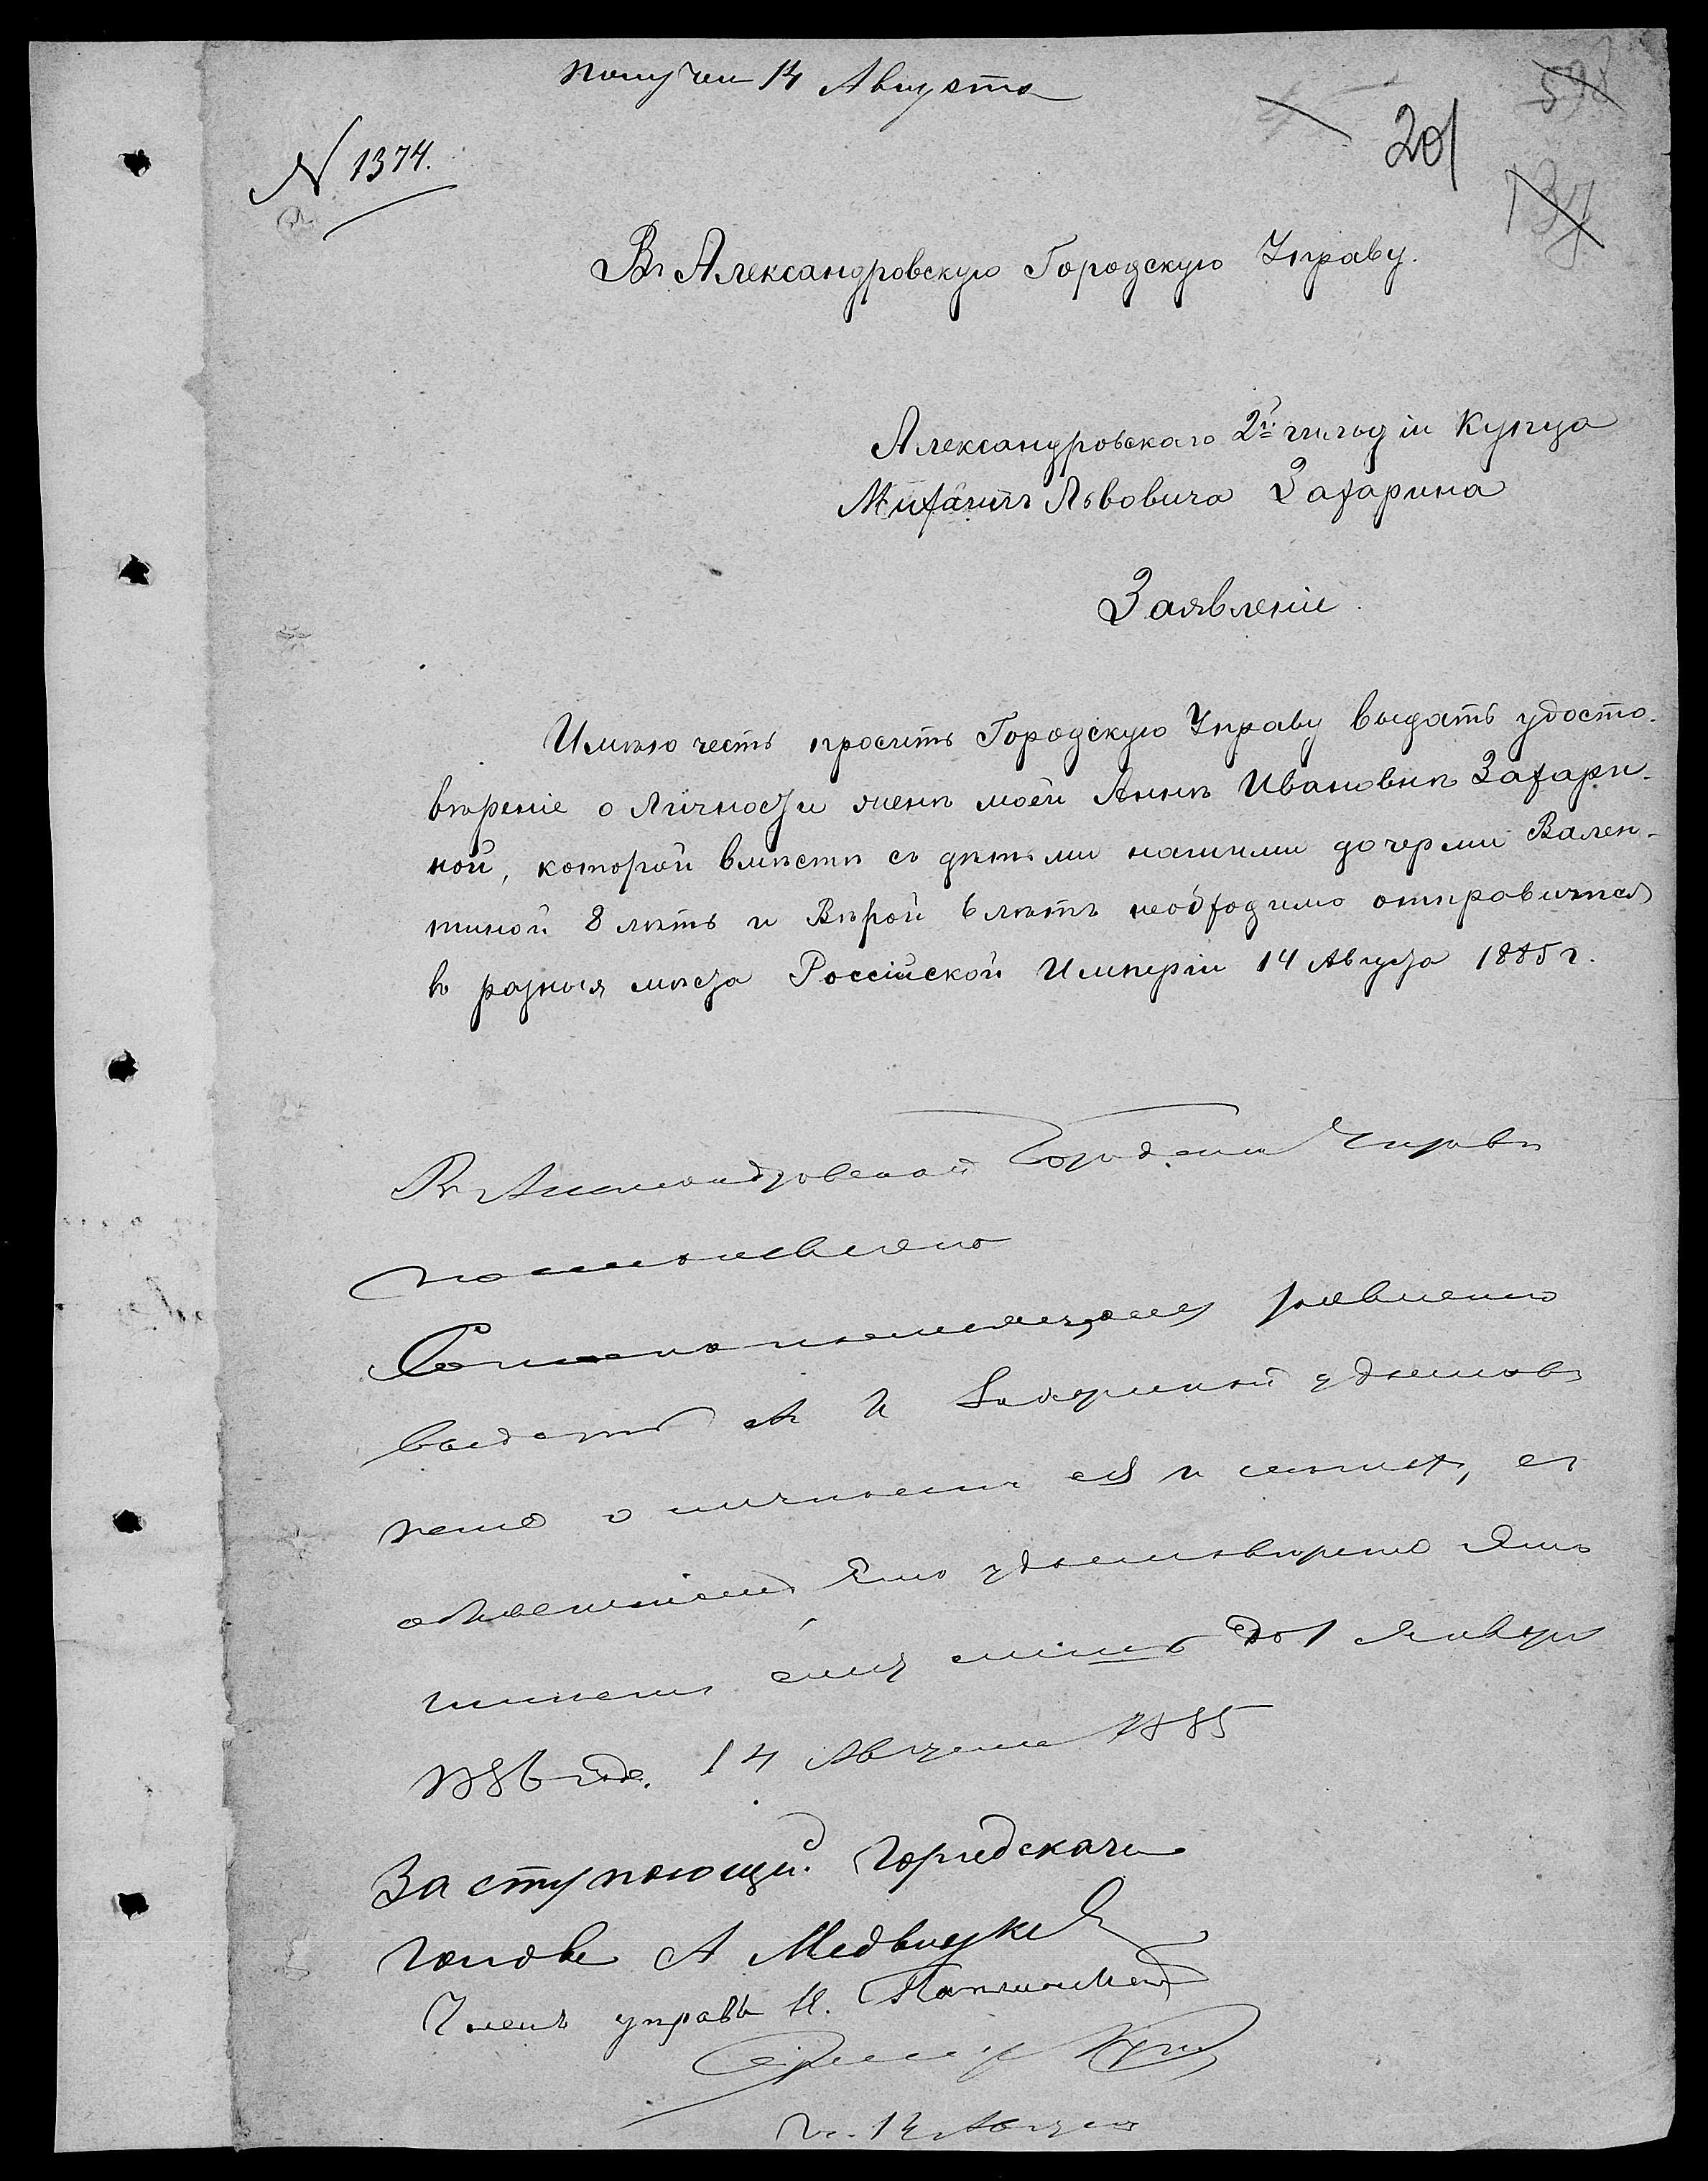 получен 14 Августа
598
201
N 1374.
137
Въ Александровскую Городскую Управу.
Александровскаго 2й гильдіи Купца
Михаилъ Львовича Захарина
Заявленіе.
Имѣю честь просить Городскую Управу выдать удосто-
вѣреніе о личности женѣ моей Аннѣ Ивановнѣ Захари-
ной, которой вмѣстѣ съ дѣтьми нашими дочерми Вален-
тиной 8 лѣтъ и Вѣрой 6 лѣтъ необходимо отправится
въ разныя мѣста Россійской Имперіи 14 Августа 1885 г.
Въ Александровской Городской Управѣ
постановлено
Согласно заявленію
выдать А И Захариной удостовѣ
реніе о личности ея и
удостовѣреніе
до 1 Января
1886 года. 14 Августа 1885
Заступающій городскаго
голове А
Членъ управы Н.
14 Августа